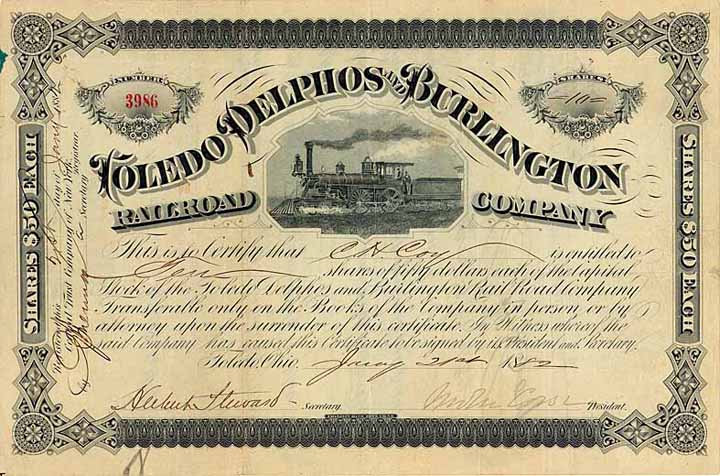 NUMBER
3986
SHARES
10
TOLEDO DELPHOS AND BURLINGTON
RAILROAD COMPANY
This is to Certify that C H Coy is entitled to
Ten shares of fifty dollars each of the Capital
Stock of the Toledo Delphos and Burlington Rail Road Company
Transferable only on the Books of the Company in person or by
attorney upon the surrender of this certificate. In Witness whereof the
said Company has caused this Certificate to be signed by its President and Secretary.
Toledo, Ohio. 21st 1882
Secretary.
President.
SHARES $50 EACH
SHARES $50 EACH
Registered this day of 1882
Trust Company of New York.
Registrar
by Secretary